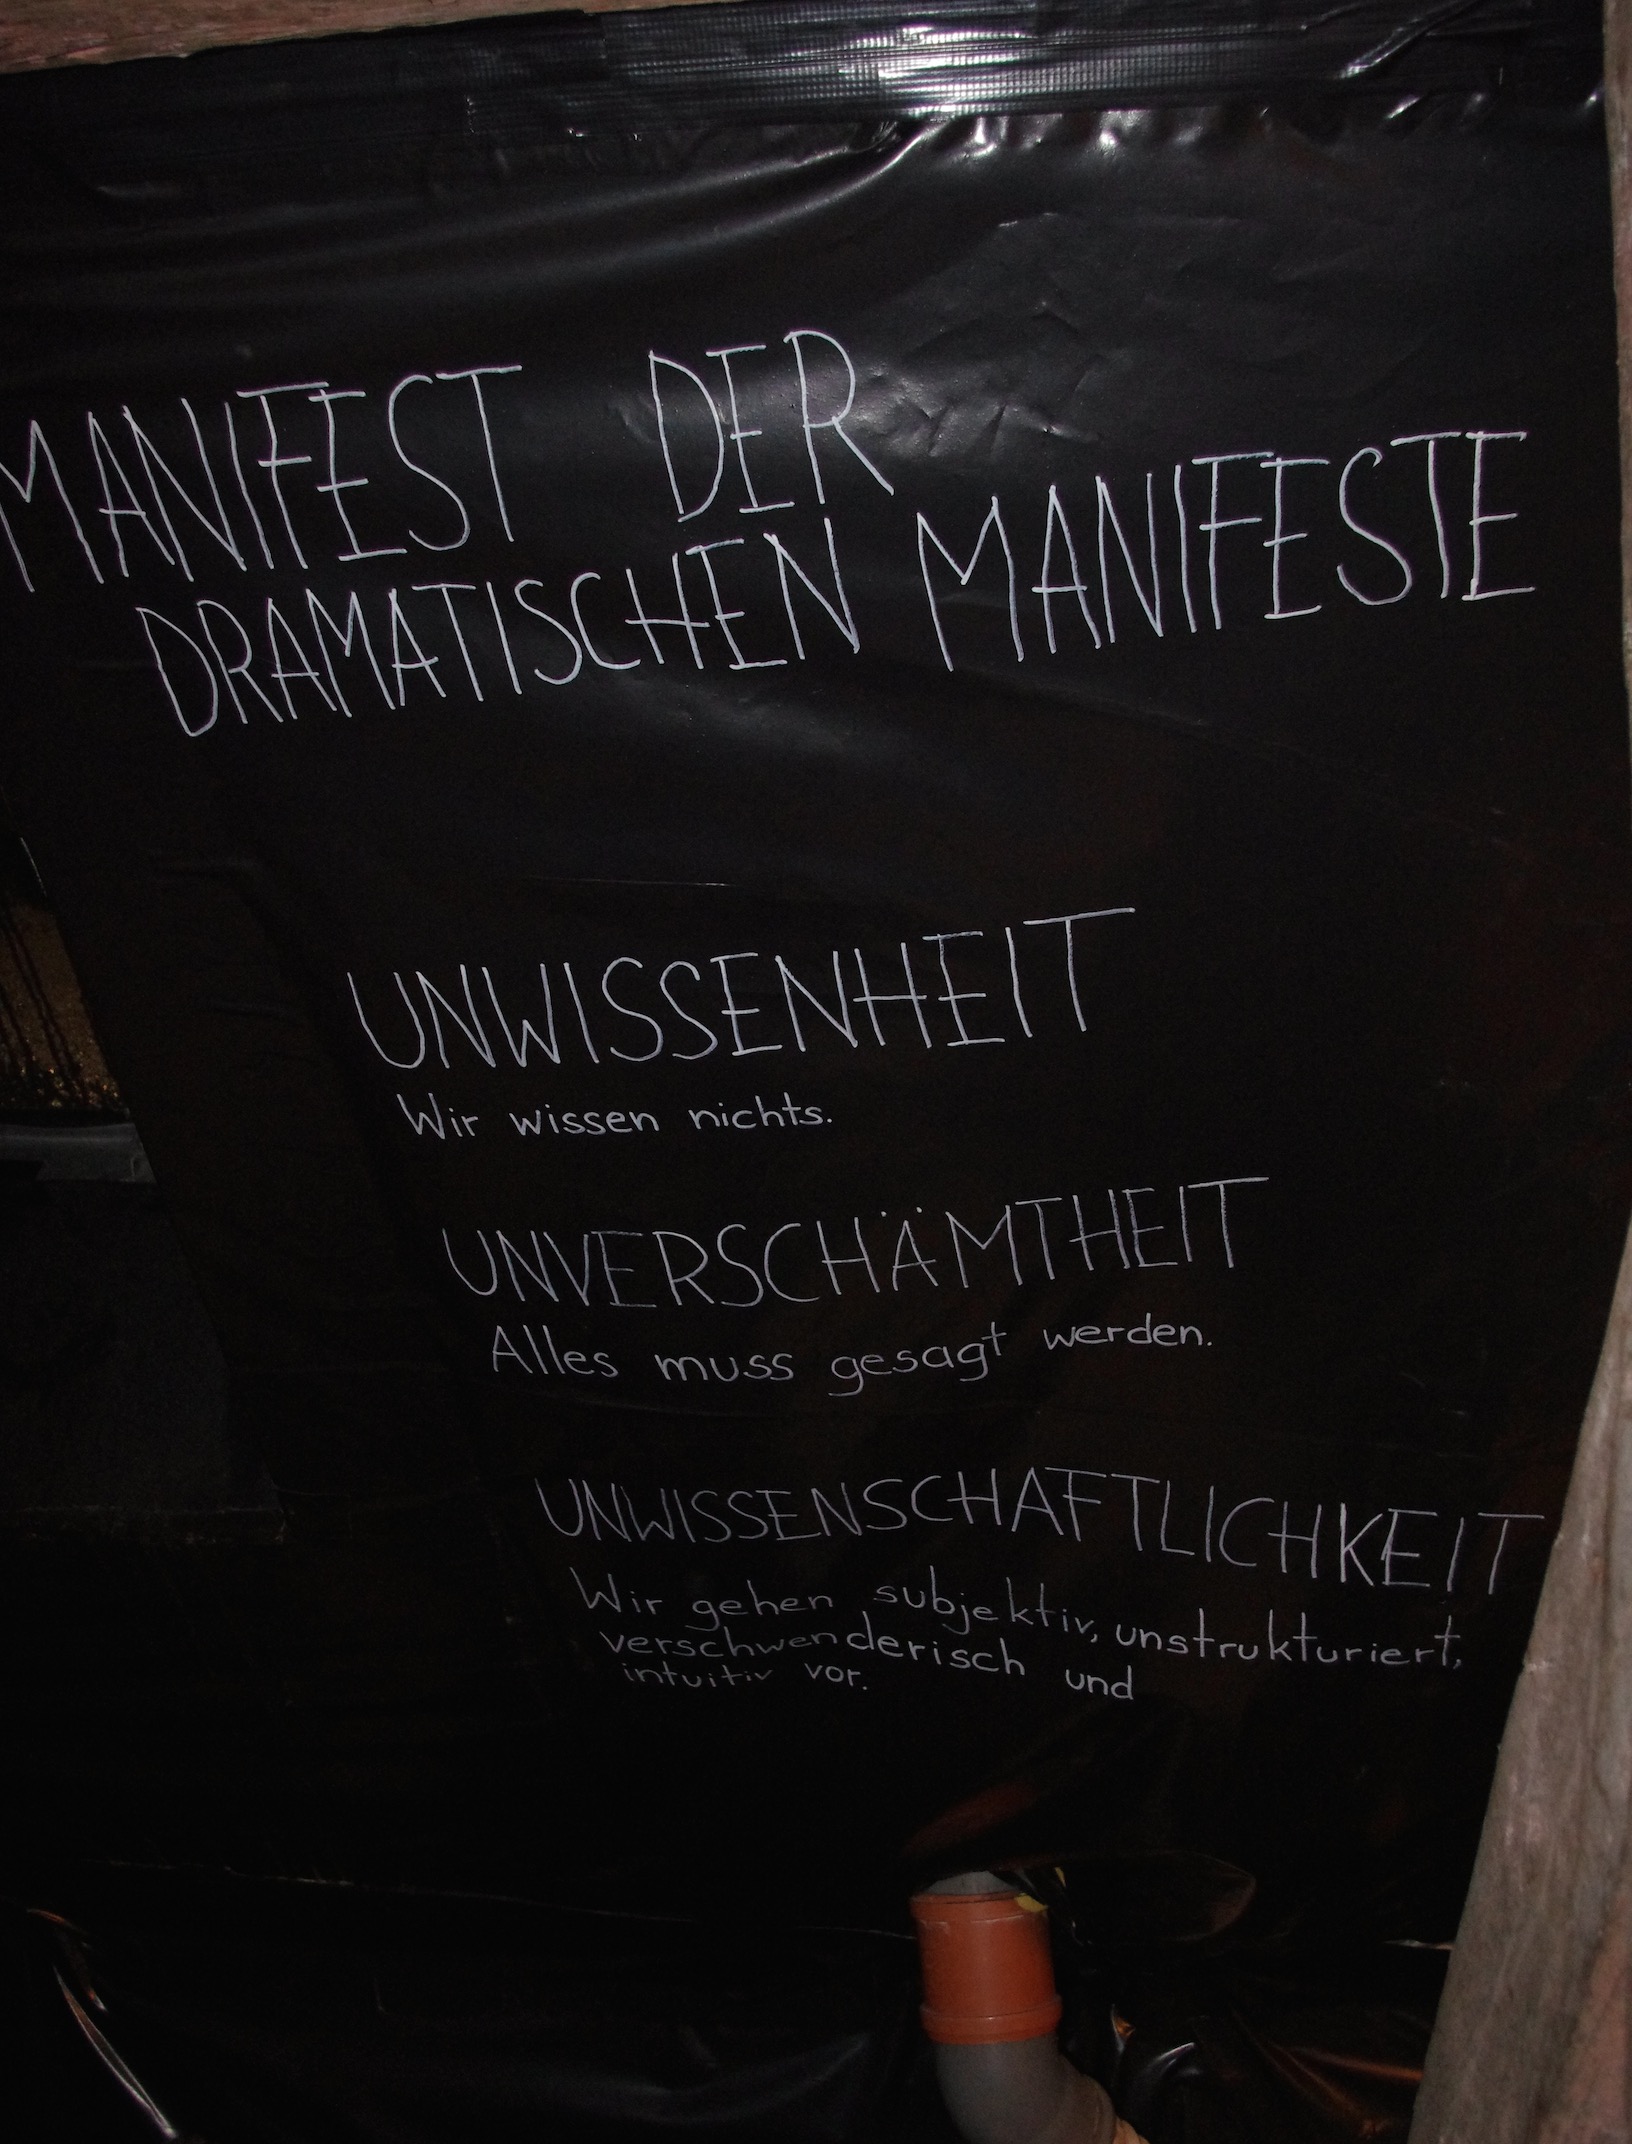 MANIFEST DER
DRAMATISCHEN MANIFESTE
UNWISSENHEIT
Wir wissen nichts.
UNVERSCHÄMTHEIT
Alles muss gesagt werden.
UNWISSENSCHAFTLICHKEIT
Wir gehen subjektiv, unstrukturiert,
verschwenderisch und
intuitiv vor.